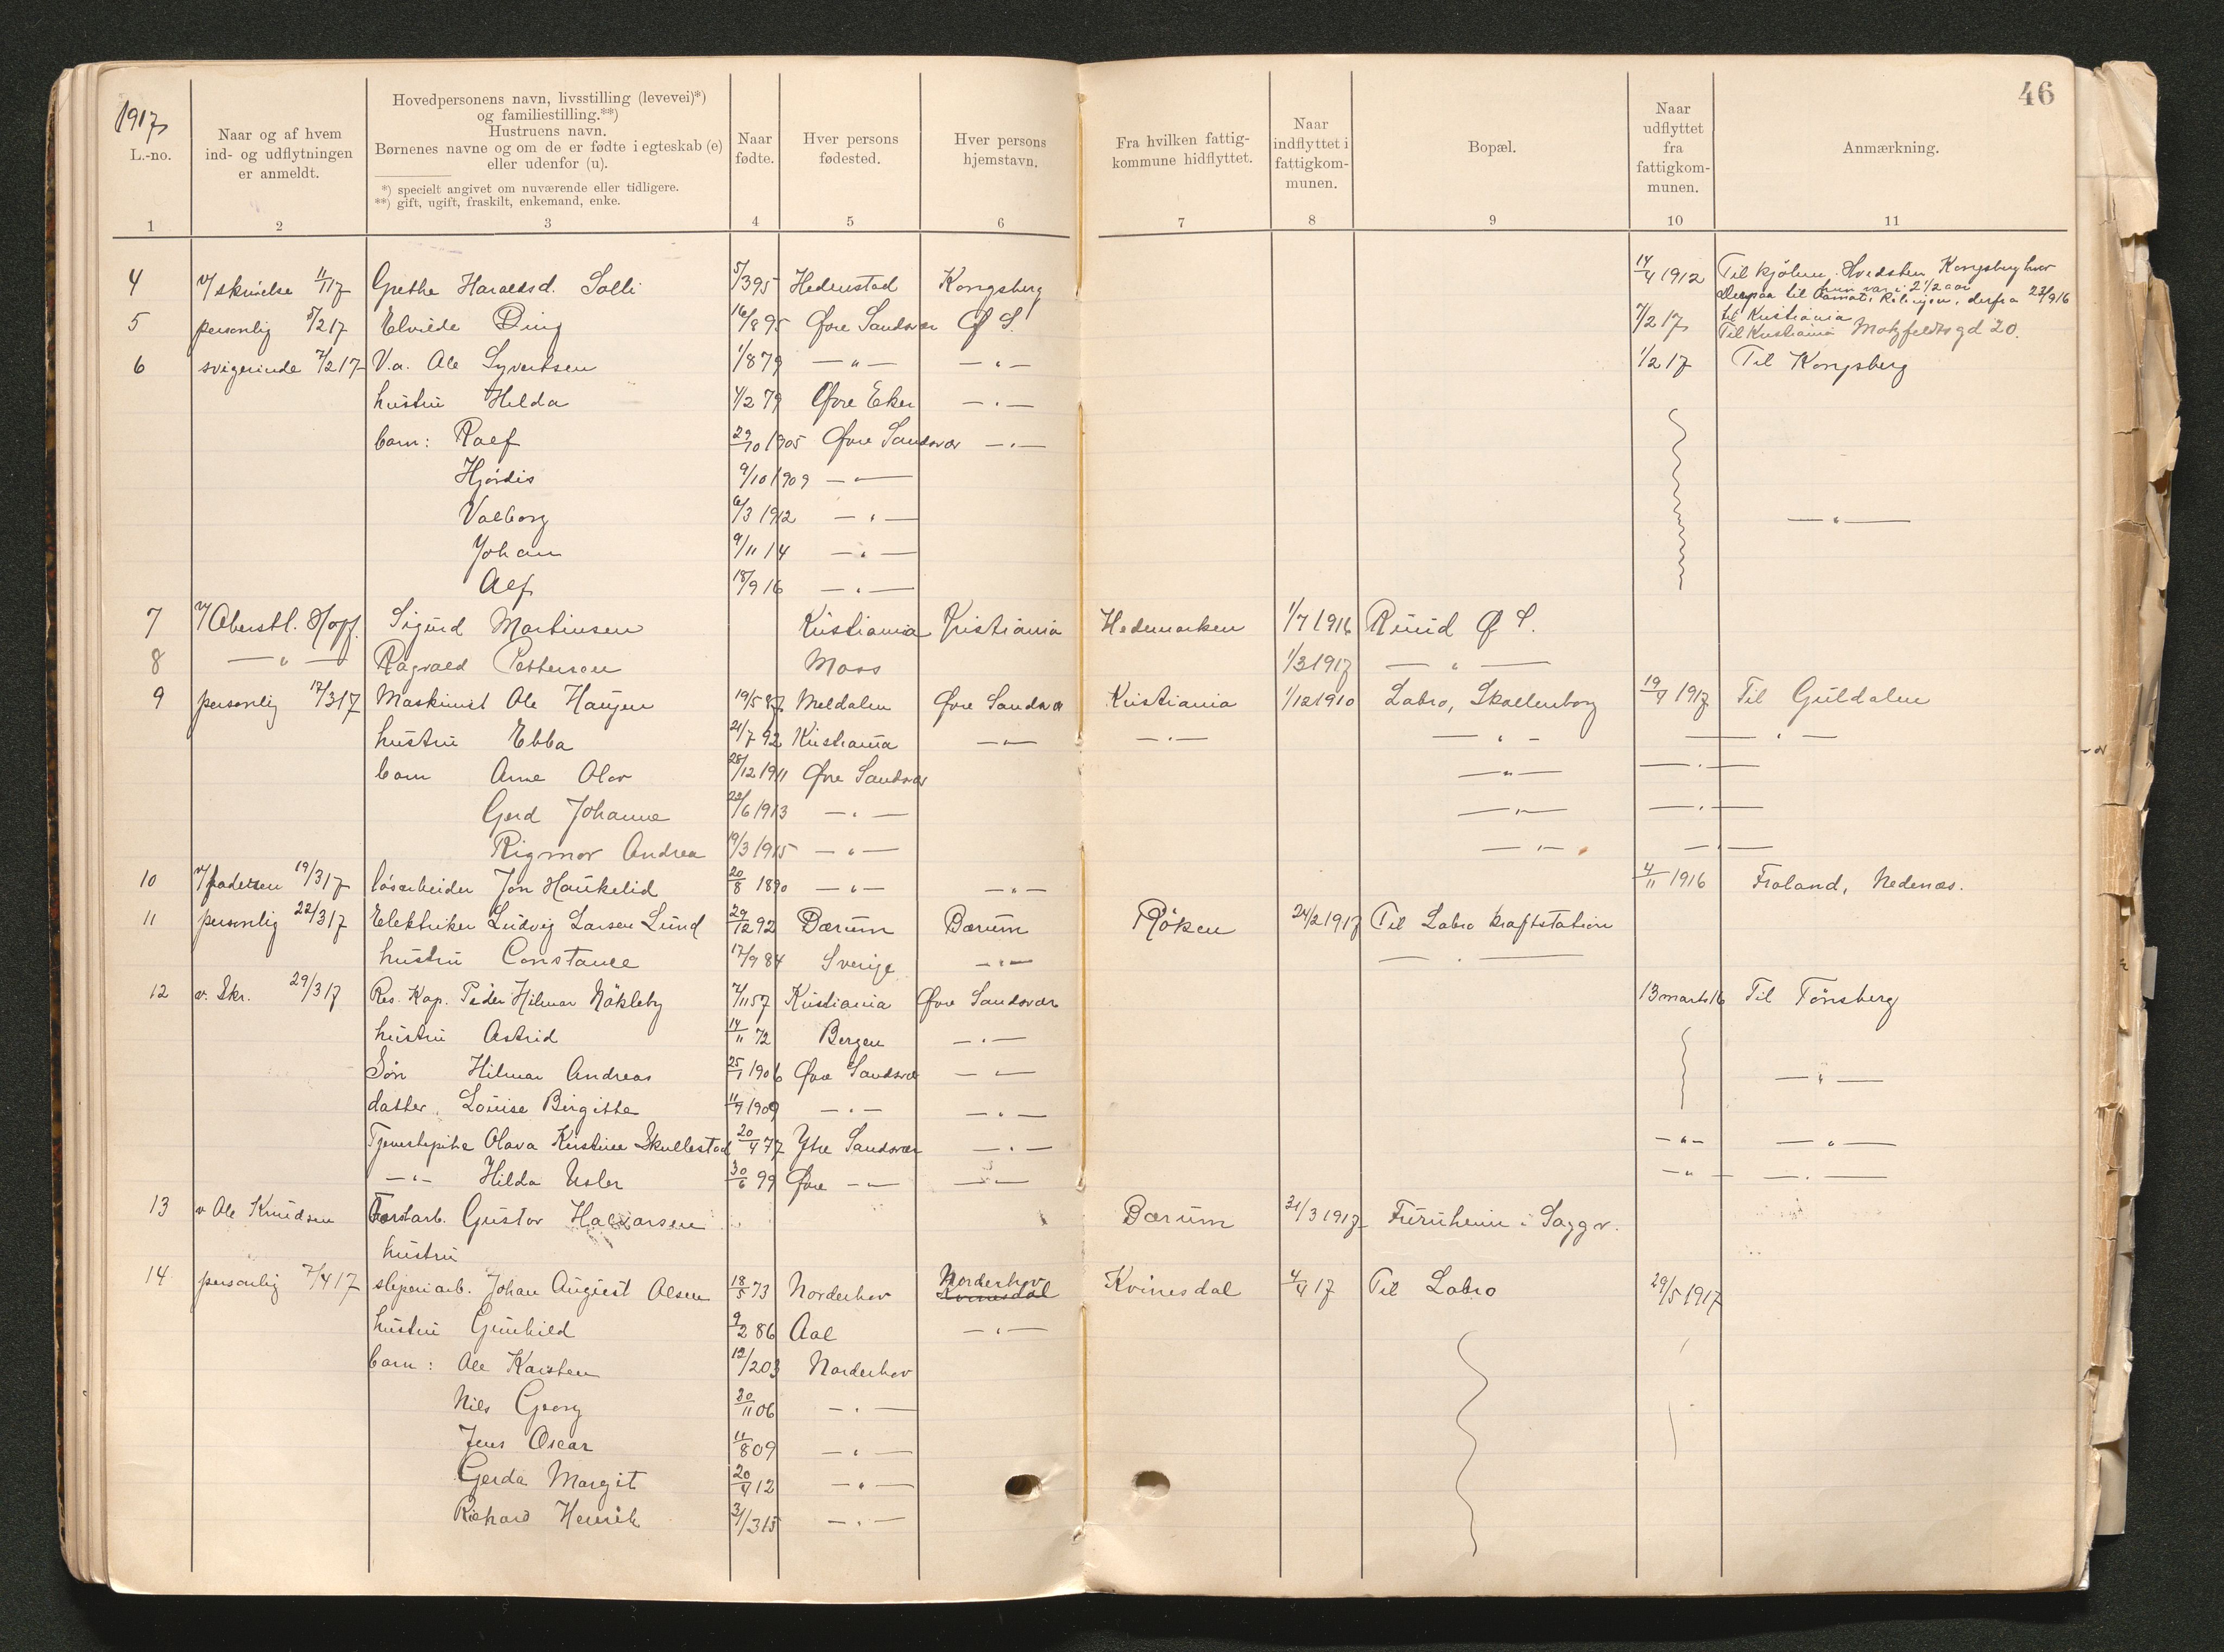 1917
46
L.-no.
Naar og af hvem
ind- og udflytningen
er anmeldt.
Hovedpersonens navn, livsstilling (levevei)*)
og familiestilling.**)
Hustruens navn.
Børnenes navne og om de er fødte i egteskab (e)
eller udenfor (u).
*) specielt angivet om nuværende eller tidligere.
**) gift, ugift, fraskilt, enkemand, enke.
Naar
fødte.
Hver persons
fødested.
Hver persons
hjemstavn.
Fra hvilken fattig-
kommune hidflyttet.
Naar
indflyttet i
fattigkom-
munen.
Bopæl.
Naar
udflyttet
fra
fattigkom-
munen.
Anmærkning.
1 2 3 4 5 6 7 8 9 10 11
4 v/ skrivelse 11/1 17 Grethe Haraldsd. Solli 5/3 95 Hedenstad Kongsberg 14/4 1912 Til kjøbm. Hvedsten, Kongsberg hvor
hun var i 2 1/2 aar
Derpaa til Rælingen, derfra 23/9 16
til Kristiania
5 personlig 5/2 17 Elvilde Ding 16/8 95 Øvre Sandsvær Ø S. 7/2 17 Til Kristiania Motzfeldtsgd 20.
6 svigerinde 7/2 17 V.a. Ole Syvertsen 1/8 79 — " — — " — 1/2 17 Til Kongsberg
hustru Hilda 4/2 79 Øvre Eker — " —
barn: Rolf 29/10 1905 Øvre Sandsvær — " —
Hjørdis 9/10 1909 — " —
Valborg 6/3 1912 — " — — " —
Johan 9/11 14 — " —
Alf 18/9 16 — " —
7 v/ Oberstl. Hopf. Sigurd Martinsen Kristiania Kristiania Hedemarken 1/7 1916 Ruud Ø S.
8 — " — Ragvald Pettersen Moss 1/3 1917 — " —
9 personlig 17/3 17 Maskinist Ole Haugen 19/5 87 Meldalen Øvre Sandsvær Kristiania 1/12 1910 Labro, Skollenborg 19/4 1917 Til Guldalen
hustru Ebba 21/7 92 Kristiania — " — — " — — " — — " —
barn Arne Olav 28/12 1911 Øvre Sandsvær — " — — " —
Gerd Johanne 22/6 1913 — " — — " — — " —
Rigmor Andrea 19/3 1915 — " — — " — — " —
10 v/ faderen 19/3 17 løsarbeider Jon Haukelid 20/8 1890 — " — — " — 4/11 1916 Froland, Nedenæs.
11 personlig 22/3 17 Elektriker Ludvig Larsen Lund 29/12 92 Bærum Bærum Røken 24/2 1917 Til Labro kraftstation
hustru Constance 17/9 84 Sverige — " — — " —
12 v. Skr. 29/3 17 Res. Kap. Peder Hilmar Nøkleby 7/11 57 Kristiania Øvre Sandsvær 13 marts 16 Til Tønsberg
hustru Astrid 14/11 72 Bergen — " —
Søn Hilmar Andreas 25/1 1906 Øvre Sandsvær — " — — " —
datter, Louise Birgitte 11/9 1909 — " — — " —
Tjenestepike Olava Kristine Skullestad 20/4 77 Ytre Sandsvær — " — — " — — " —
— " — Hilda Usler 30/6 99 Øvre — " — — " — — " — — " —
13 v Ole Knudsen Forstarb. Gustav Halvorsen Bærum 31/3 1917 Furuheim i Saggr.
hustru
14 personlig 7/4 17 sliperiarb. Johan August Olsen 18/5 73 Norderhov Norderhov Kvinesdal Kvinesdal 4/4 17 Til Labro 29/5 1917
hustru Gunhild 9/2 86 Aal — " —
barn: Ole Karsten 12/2 03 Norderhov
Nils Georg 30/11 06 — " —
Jens Oscar 11/8 09 — " —
Gerda Margit 20/4 12 — " —
Richard Henrik 31/3 15 — " —